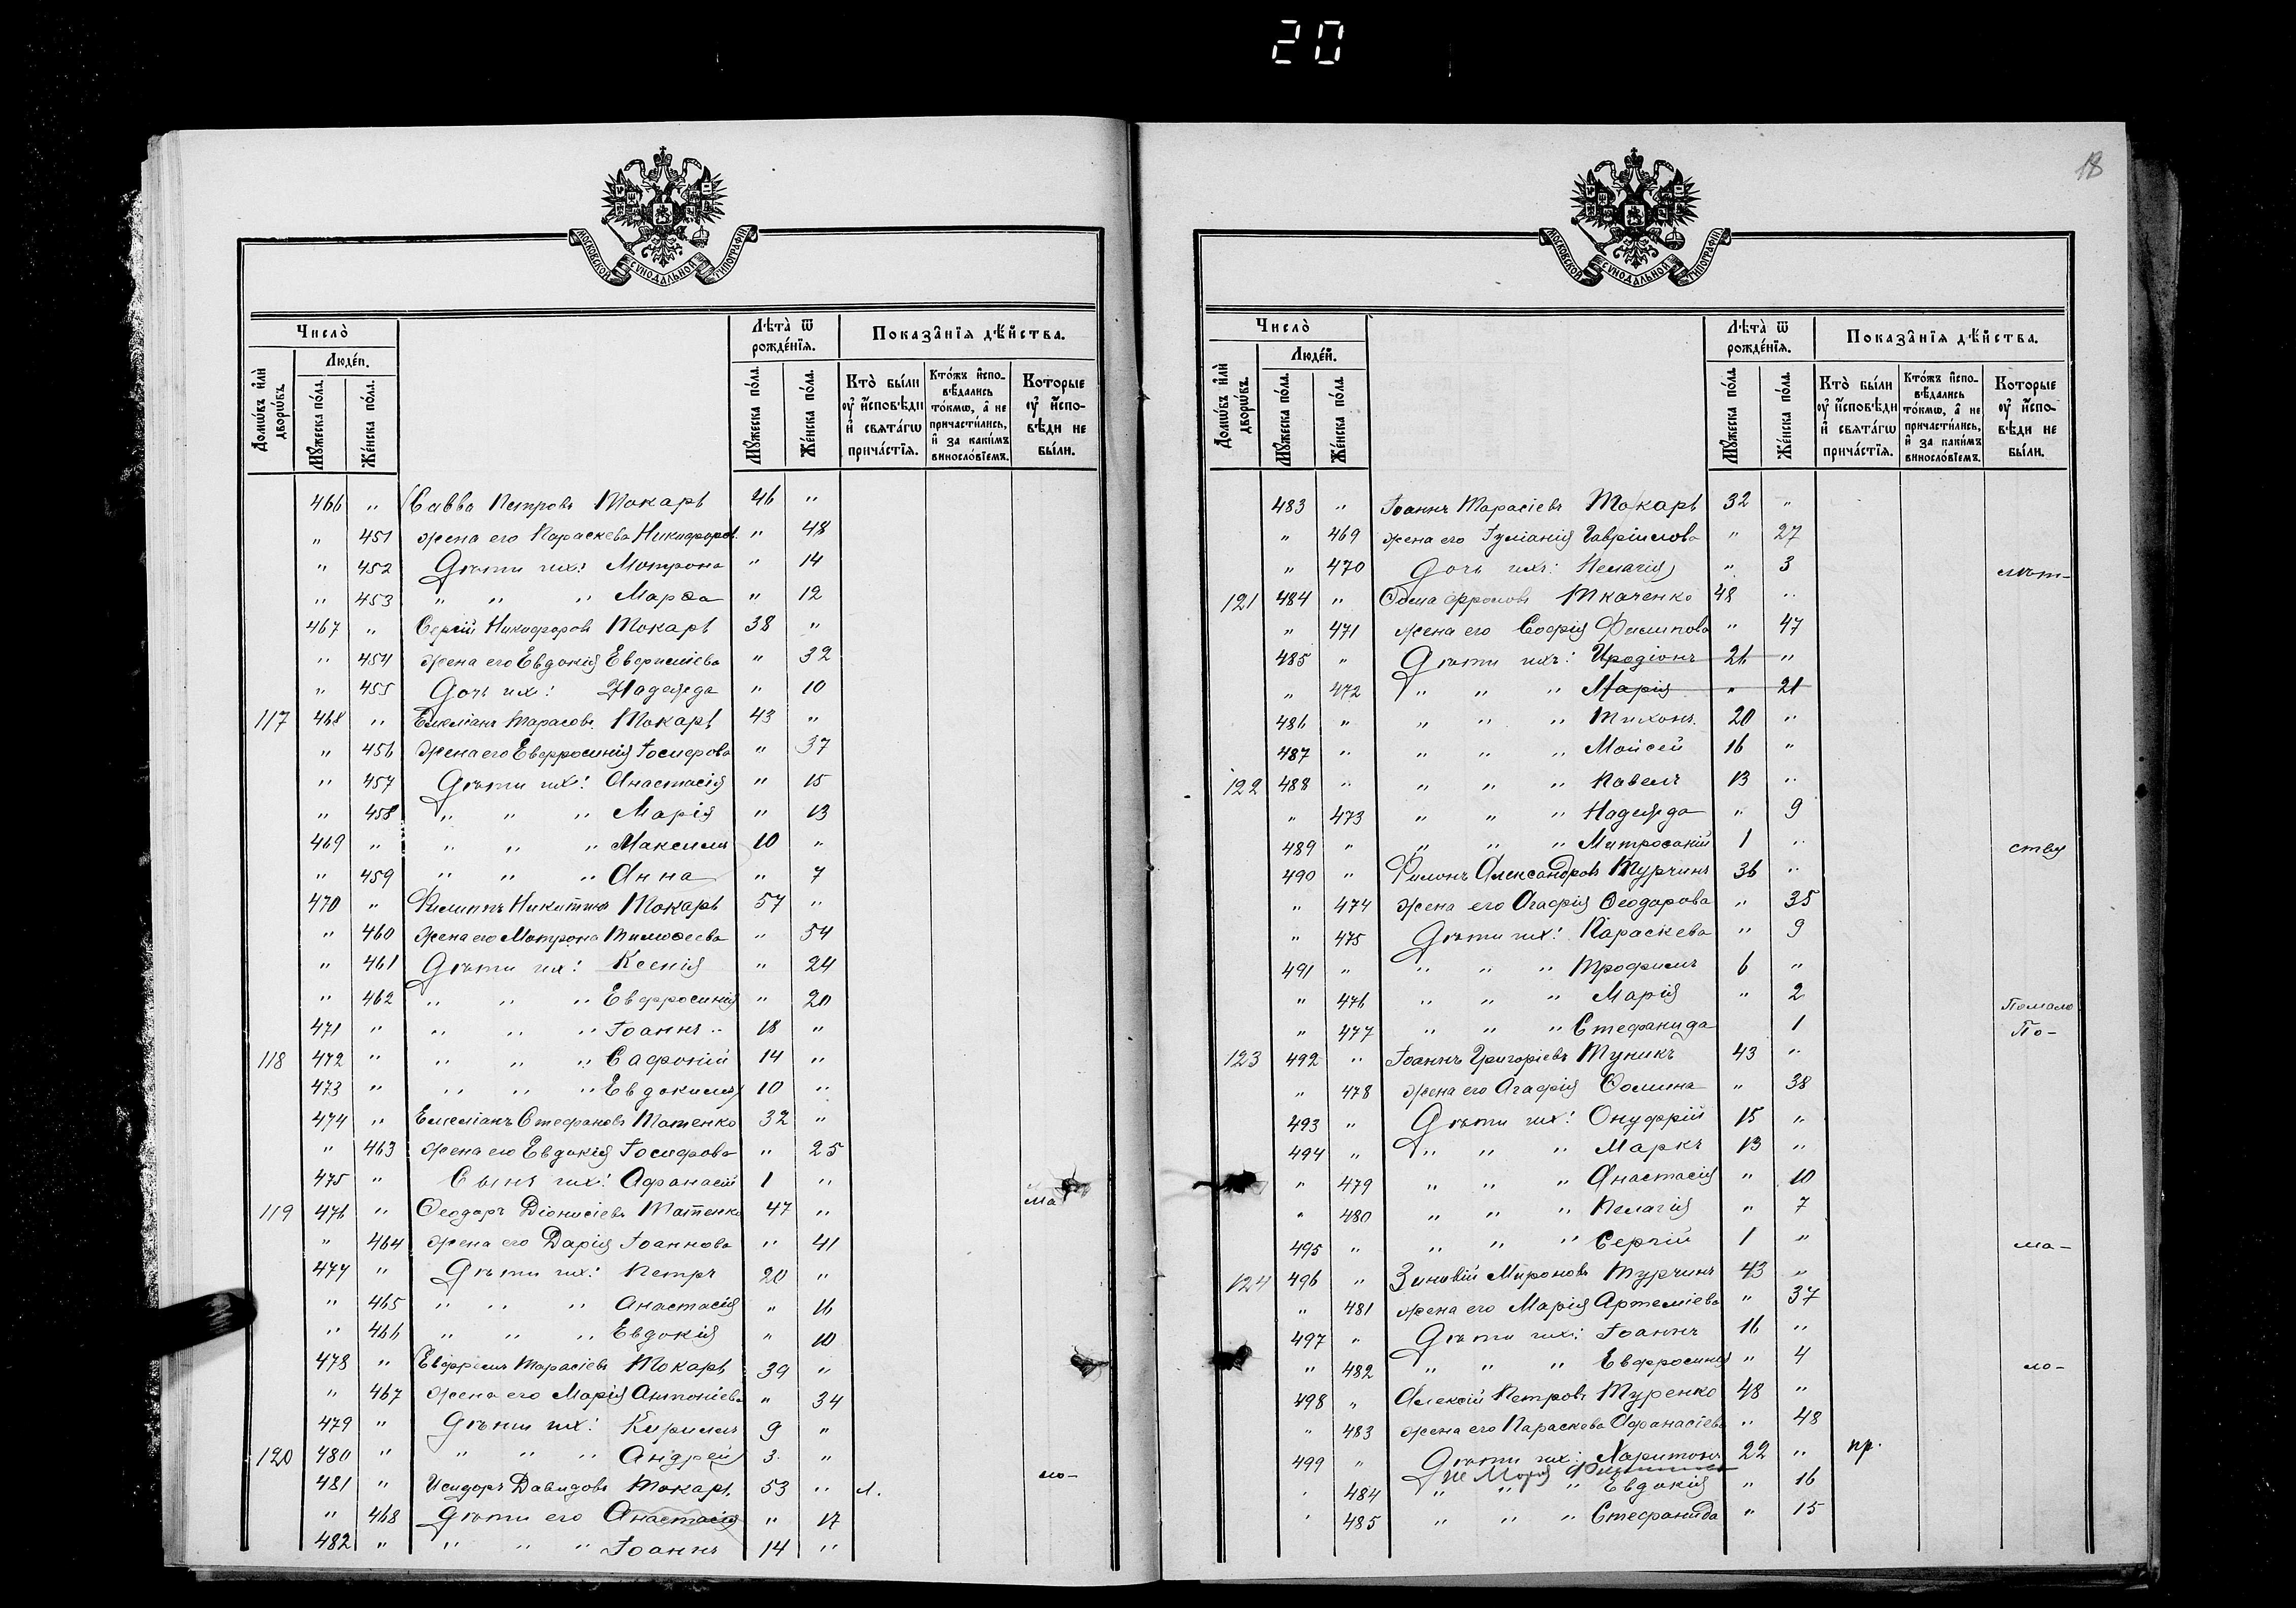 20
МОСКОВСКОЙ СѴНОДАЛЬНОЙ ТИПОГРАФІИ
Число̀
Люде́й.
Домѡ́въ и҆лѝ дворѡ́въ.
Мꙋ́жеска по́ла.
Же́нска по́ла.
Лѣ́та ѿ рожде́нїѧ.
Мꙋ́жеска по́ла.
Же́нска по́ла.
Показа̑нїѧ дѣ́йства.
Кто̀ бы́ли оу҆ и҆́сповѣди и҆ свѧта́гѡ прича́стїѧ.
Кто́жъ и҆спо-вѣ́дались то́кмѡ, а҆ не причасти́лись, и҆ за каки́мъ винослові́емъ.
Кото́рые оу҆ и҆́спо-вѣди не бы́ли.
466 " Савва Петровъ Токарь 46 "
" 451 жена его Параскева Никифоров. " 48
" 452 Дѣти их: Мотрона " 14
" 453 " " " Марѳа " 12
467 " Сергій Никифоровъ Токарь 38 "
" 454 жена его Евдокія Евфиміева " 32
" 455 Дочь их: Надежда " 10
117 468 " Емеліанъ Тарасовъ Токарь 43 "
" 456 жена его Евфросинія Іосифова " 37
" 457 Дѣти их: Анастасія " 15
" 458 " " " Марія " 13
469 " " " " Максимъ 10 "
" 459 " " " Анна " 7
470 " Филиппъ Никитинъ Токарь 57 "
" 460 жена его Матрона Тимоѳеева " 54
" 461 Дѣти их: Ксенія " 24
" 462 " " " Евфросинія " 20
471 " " " " Іоаннъ 18 "
118 472 " " " " Сафроній 14 "
473 " " " " Евдокимъ 10 "
474 " Емеліанъ Стефановъ Татенко 32 "
" 463 жена его Евдокія Іосифова " 25
475 " Сынъ их: Афанасій 1 " ма
119 476 " Ѳеодоръ Діонисіевъ Татенко 47 "
" 464 жена его Дарія Іоаннова " 41
477 " Дѣти их: Петръ 20 "
" 465 " " " Анастасія " 16
" 466 " " " Евдокія " 10
478 " Евфремъ Тарасіевъ Токарь 39 "
" 467 жена его Марія Антоніева " 34
479 " Дѣти их: Кириллъ 9 "
120 480 " " " " Андрей 3 " ло-
481 " Исидоръ Давидовъ Токарь 53 " л.
" 468 Дѣти его Анастасія " 17
482 " " " " Іоаннъ 14 "
18
МОСКОВСКОЙ СѴНОДАЛЬНОЙ ТИПОГРАФІИ
Число̀
Люде́й.
Домѡ́въ и҆лѝ дворѡ́въ.
Мꙋ́жеска по́ла.
Же́нска по́ла.
Лѣ́та ѿ рожде́нїѧ.
Мꙋ́жеска по́ла.
Же́нска по́ла.
Показа̑нїѧ дѣ́йства.
Кто̀ бы́ли оу҆ и҆́сповѣди и҆ свѧта́гѡ прича́стїѧ.
Кто́жъ и҆спо-вѣ́дались то́кмѡ, а҆ не причасти́лись, и҆ за каки́мъ винослові́емъ.
Кото́рые оу҆ и҆́спо-вѣди не бы́ли.
483 " Іоаннъ Тарасіевъ Токарь 32 "
" 469 жена его Іуліанія Гавріилова " 27
" 470 Дочь ихъ: Пелагія " 3 лѣт-
121 484 " Ѳома Фроловъ Ткаченко 48 "
" 471 жена его Софія Филипова " 47
485 " Дѣти ихъ: Иродіонъ 21 "
" 472 " " " Марія " 21
486 " " " " Тихонъ 20 "
487 " " " " Моисей 16 "
122 488 " " " " Павелъ 13 "
" 473 " " " Надежда " 9
489 " " " " Митрофаній 1 " ству
490 " Филонъ Александровъ Турчинъ 36 "
" 474 жена его Агафія Ѳеодорова " 35
" 475 Дѣти их: Параскева " 9
491 " " " " Трофимъ 6 "
" 476 " " " Марія " 2 Помало
" 477 " " " Стефанида 1 По-
123 492 " Іоаннъ Григоріевъ Туникъ 43 "
" 478 жена его Агафія Ѳомина " 38
493 " Дѣти их: Онуфрій 15 "
494 " " " " Маркъ 13 "
" 479 " " " Анастасія " 10
" 480 " " " Пелагія " 7
495 " " " " Сергій 1 " ма-
124 496 " Зиновій Мироновъ Турчинъ 43 "
" 481 жена его Марія Артеміева " 37
497 " Дѣти их: Іоаннъ 16 "
" 482 " " " Евфросинія " 4 ло-
498 " Алексій Петровъ Туренко 48 "
" 483 жена его Параскева Афанасіева " 48
499 " Дѣти их: Харитонъ 22 " пр.
Марія
" 484 " " " Евдокія " 16
" 485 " " " Стефанида " 15